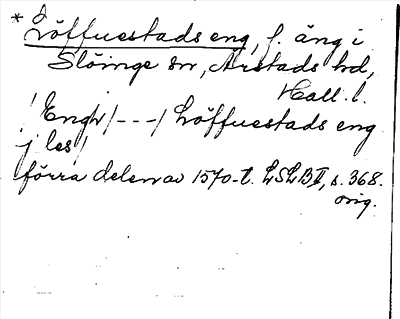 * Löffuestads eng, f. äng i
Slöinge sn, Årstads hd,
Hall. l.
/ Engh /---/ Löffuestads eng
j les /
förra delen av 1570-t. LSLB II, s. 368.
orig.